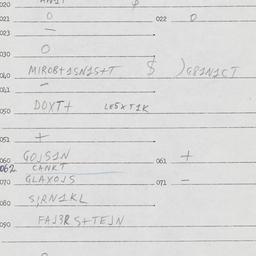 020
021 0 022 0
023 —
030 0
040 MIROB+1SN1S+T $ )G81N1CT
041 —
050 DOXT+ LE5XT1K
051 +
060 GOJS1N 061 +
062 CANKT
070 GLAXOJS 071 —
080 SJRN1KL
090 FAJ3R S+TEJN